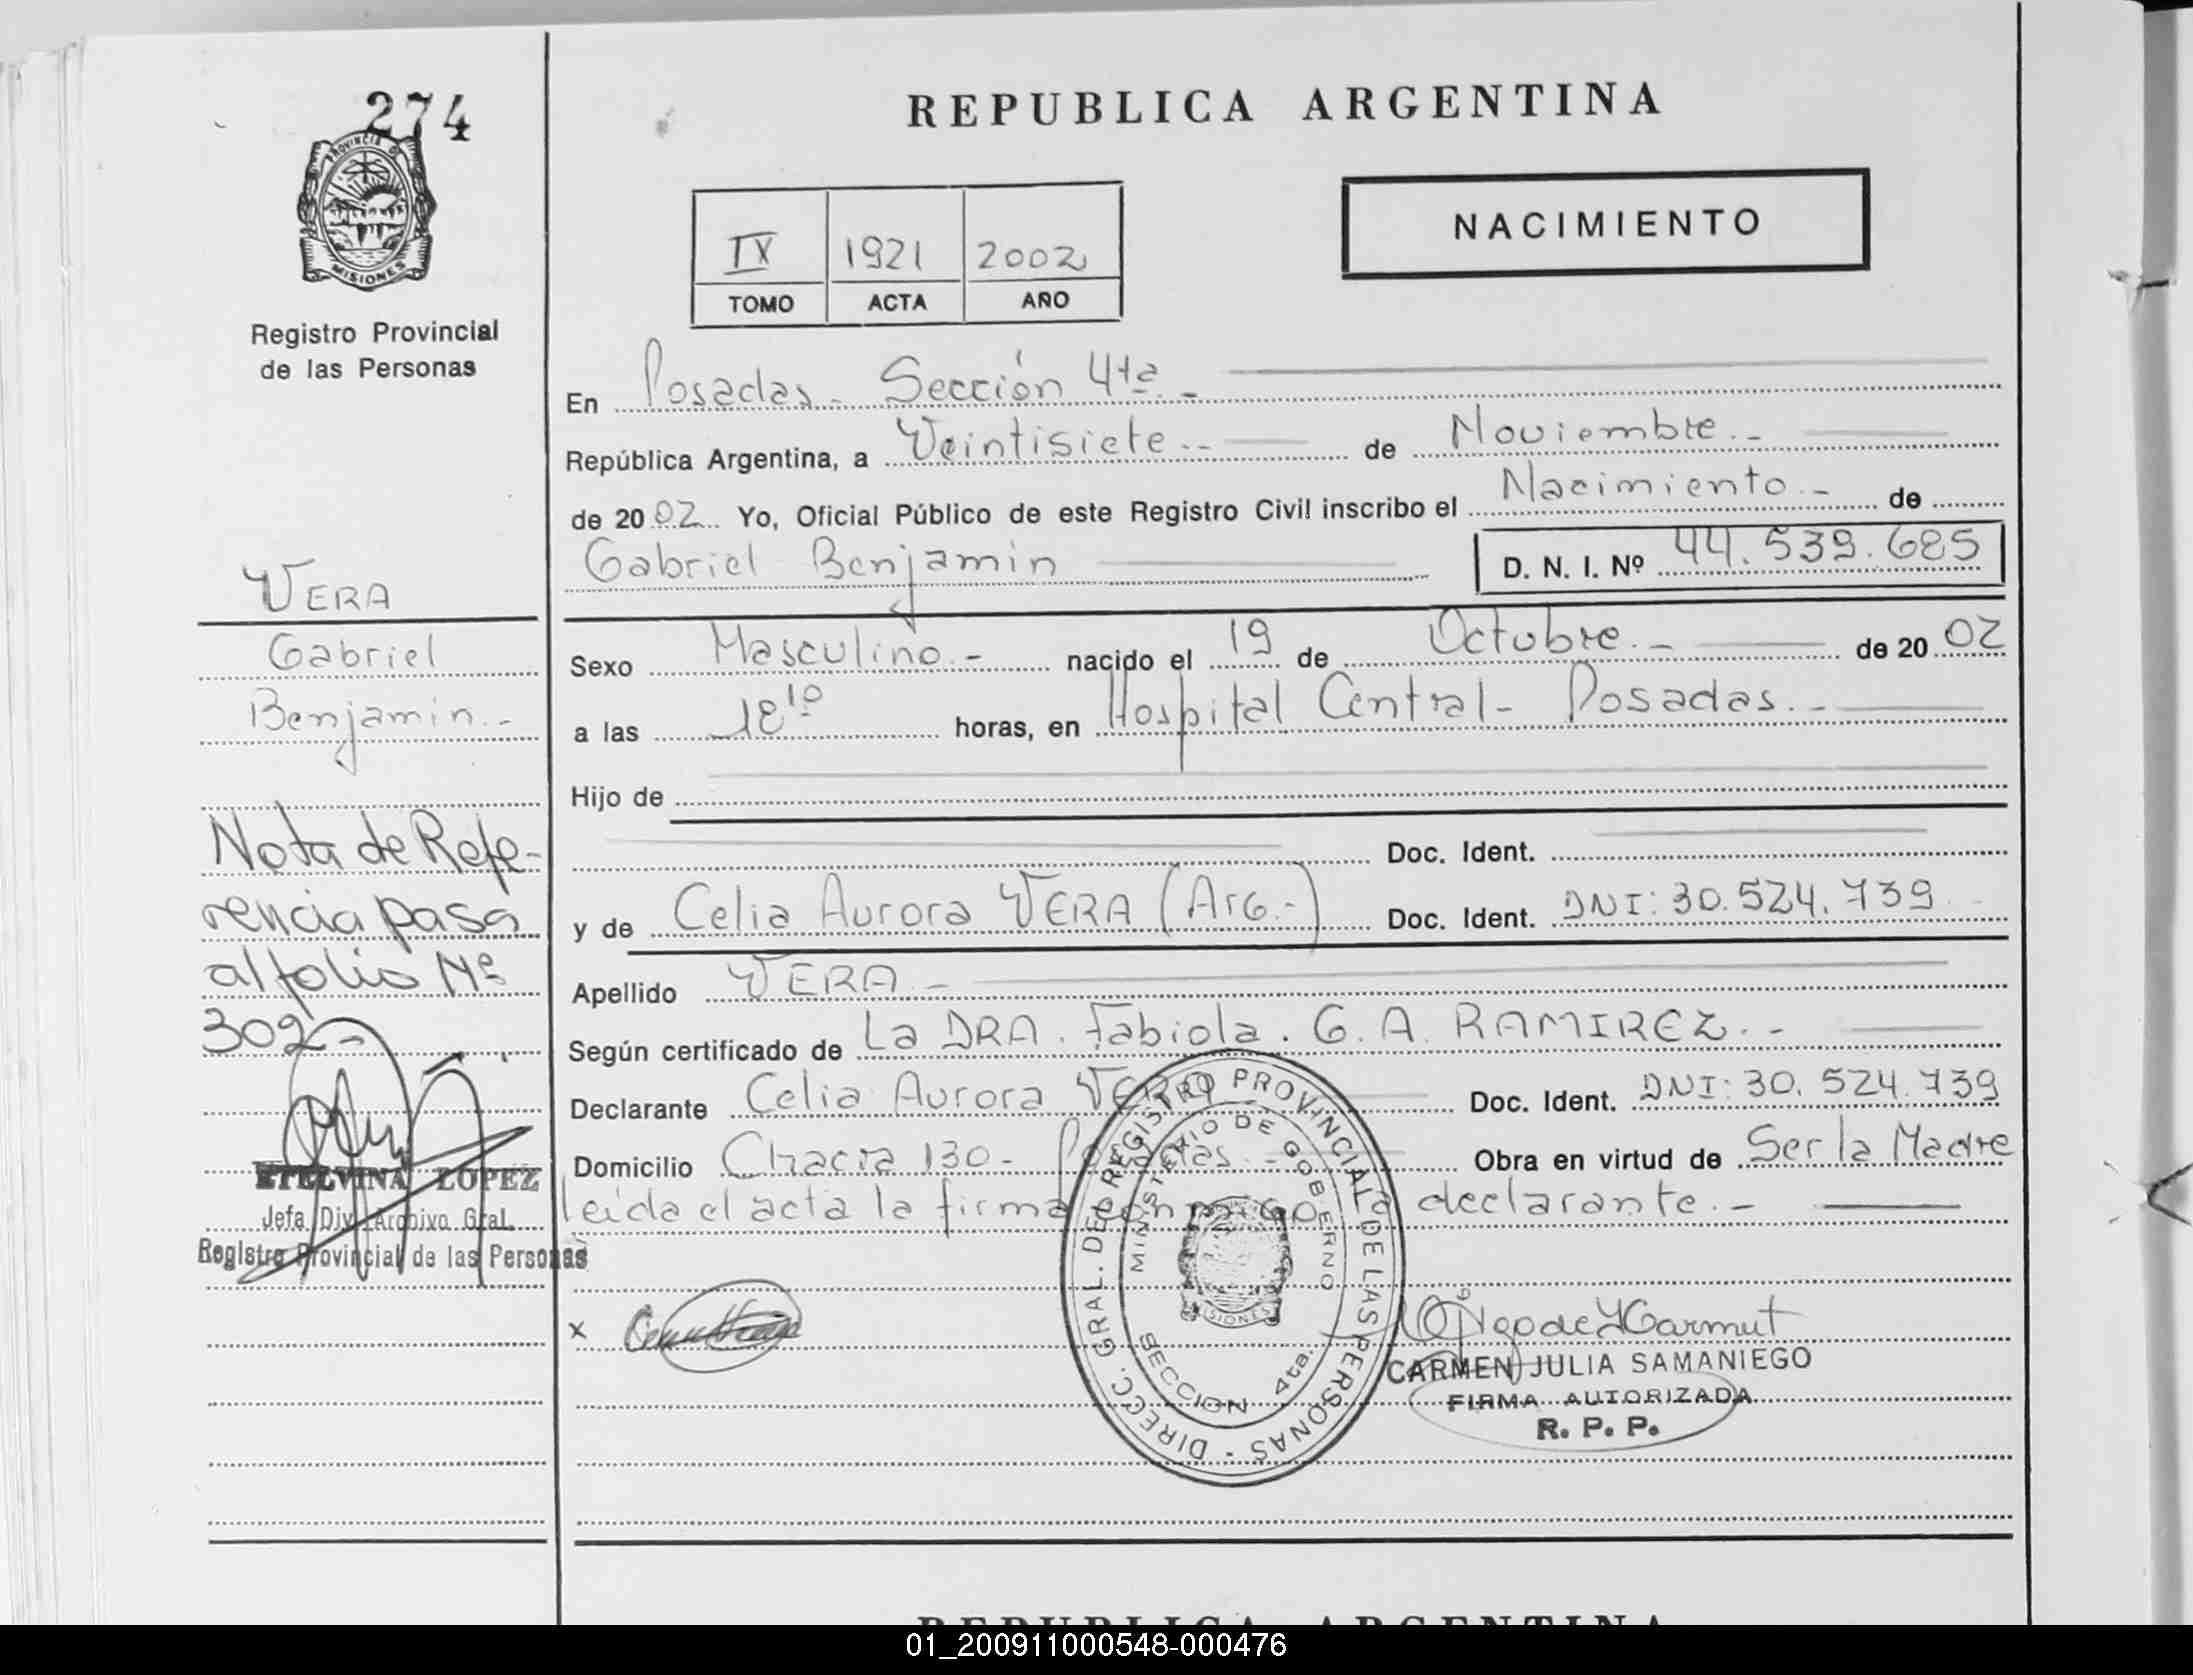 274
PROVINCIA DE
MISIONES
Registro Provincial
de las Personas
VERA
Gabriel
Benjamin.-
Nota de Refe-
rencia pasa
al folio Nº
302-
ETELVINA LOPEZ
Jefa Div. Archivo Gral.
Registro Provincial de las Personas
REPUBLICA ARGENTINA
NACIMIENTO
IX 1921 2002
TOMO ACTA AÑO
En Posadas - Sección 4ta.-
República Argentina, a Veintisiete.- de Noviembre.-
de 2002 Yo, Oficial Público de este Registro Civil inscribo el Nacimiento.- de
Gabriel Benjamin D. N. I. Nº 44.539.685
Sexo Masculino.- nacido el 19 de Octubre.- de 2002
a las 18¹⁰ horas, en Hospital Central - Posadas.-
Hijo de
Doc. Ident.
y de Celia Aurora VERA (Arg.-) Doc. Ident. DNI: 30.524.739
Apellido VERA -
Según certificado de La DRA. Fabiola. G. A. RAMIREZ.-
Declarante Celia Aurora VERA Doc. Ident. DNI: 30.524.739
Domicilio Chacra 130 - Posadas.- Obra en virtud de Ser la Madre
leida el acta la firma conmigo la declarante.-
DIRECC. GRAL. DEL REGISTRO PROVINCIAL DE LAS PERSONAS -
MINISTERIO DE GOBIERNO
MISIONES
SECCION 4ta.
x
CARMEN JULIA SAMANIEGO
FIRMA AUTORIZADA
R. P. P.
REPUBLICA ARGENTINA
01_200911000548-000476